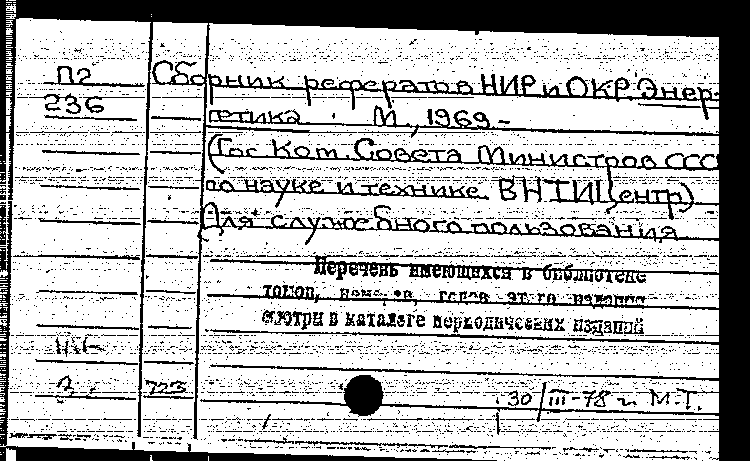 П2 Сборник рефератов НИР и ОКР. Энер-
236 гетика. М., 1969.-
(Гос. Ком. Совета Министров ССС
по науке и технике. ВНТИЦентр)
(Для служебного пользования
Перечень имеющихся в библиотеке
томов, номеров, годов этого издания
смотри в каталоге периодических изданий
723
30/III-78 г. М.Т.